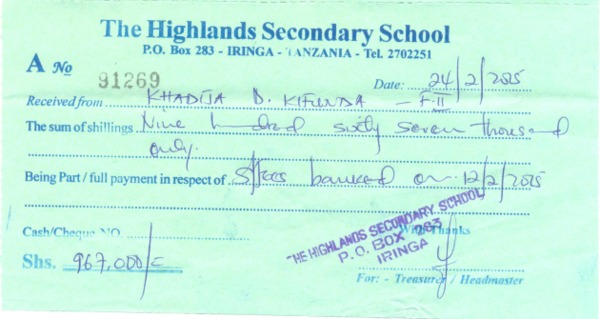 The Highlands Secondary School
P.O. Box 283 - IRINGA - TANZANIA - Tel. 2702251
A No 91269
Date: 24/2/2025
Received from KHADIJA D. KIFUNDA - F.II
The sum of shillings Nine hundred sixty seven thousand
only.
Being Part / full payment in respect of S/fees banked on 12/2/2025
Cash/Cheque NO
With Thanks
THE HIGHLANDS SECONDARY SCHOOL
P.O. BOX 283
IRINGA
Shs. 967,000/=
For: - Treasurer / Headmaster